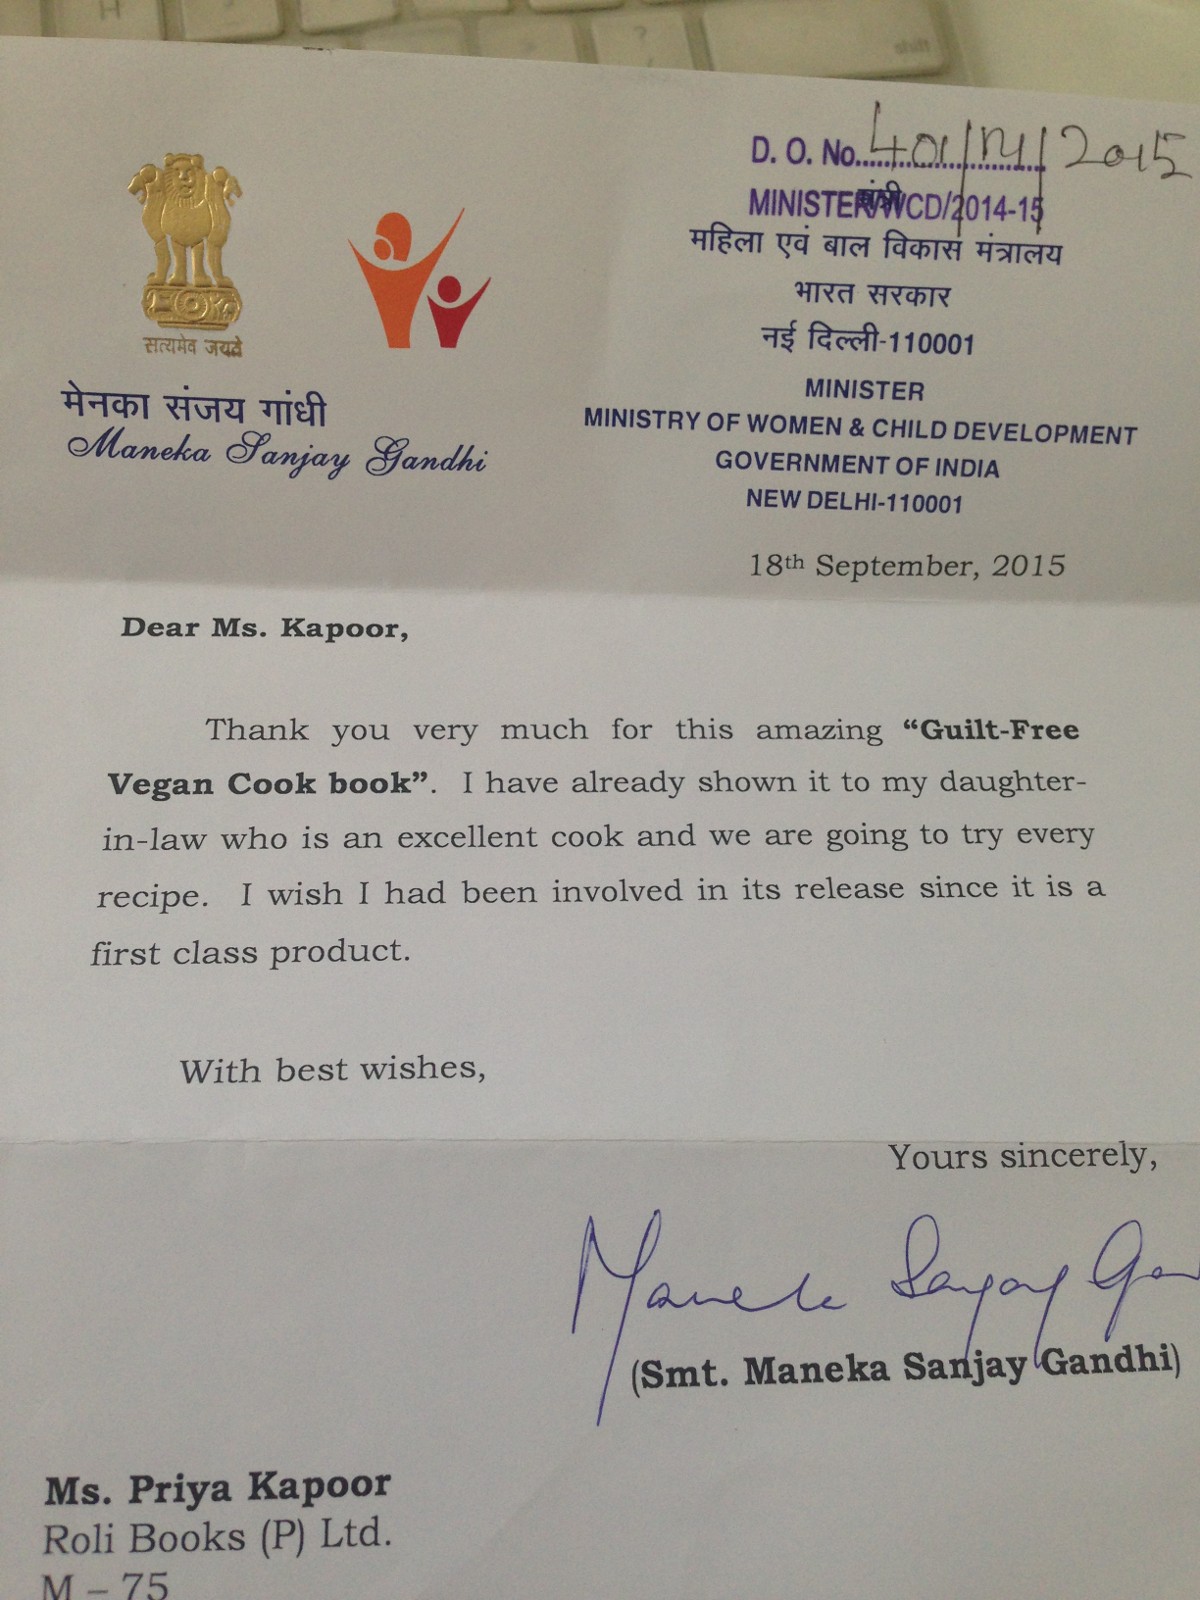 D. O. No. 401/M/2015
MINISTER/WCD/2014-15
मंत्री
महिला एवं बाल विकास मंत्रालय
भारत सरकार
नई दिल्ली-110001
MINISTER
MINISTRY OF WOMEN & CHILD DEVELOPMENT
GOVERNMENT OF INDIA
NEW DELHI-110001
सत्यमेव जयते
मेनका संजय गांधी
Maneka Sanjay Gandhi
18th September, 2015
Dear Ms. Kapoor,
Thank you very much for this amazing “Guilt-Free
Vegan Cook book”. I have already shown it to my daughter-
in-law who is an excellent cook and we are going to try every
recipe. I wish I had been involved in its release since it is a
first class product.
With best wishes,
Yours sincerely,
Maneka Sanjay Gan
(Smt. Maneka Sanjay Gandhi)
Ms. Priya Kapoor
Roli Books (P) Ltd.
M – 75